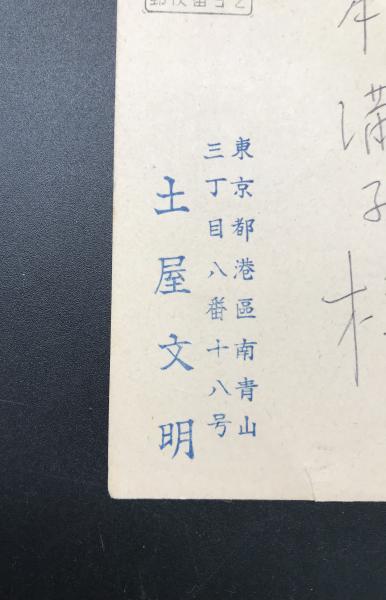 本満子様
東京都港區南青山
三丁目八番十八号
土屋文明